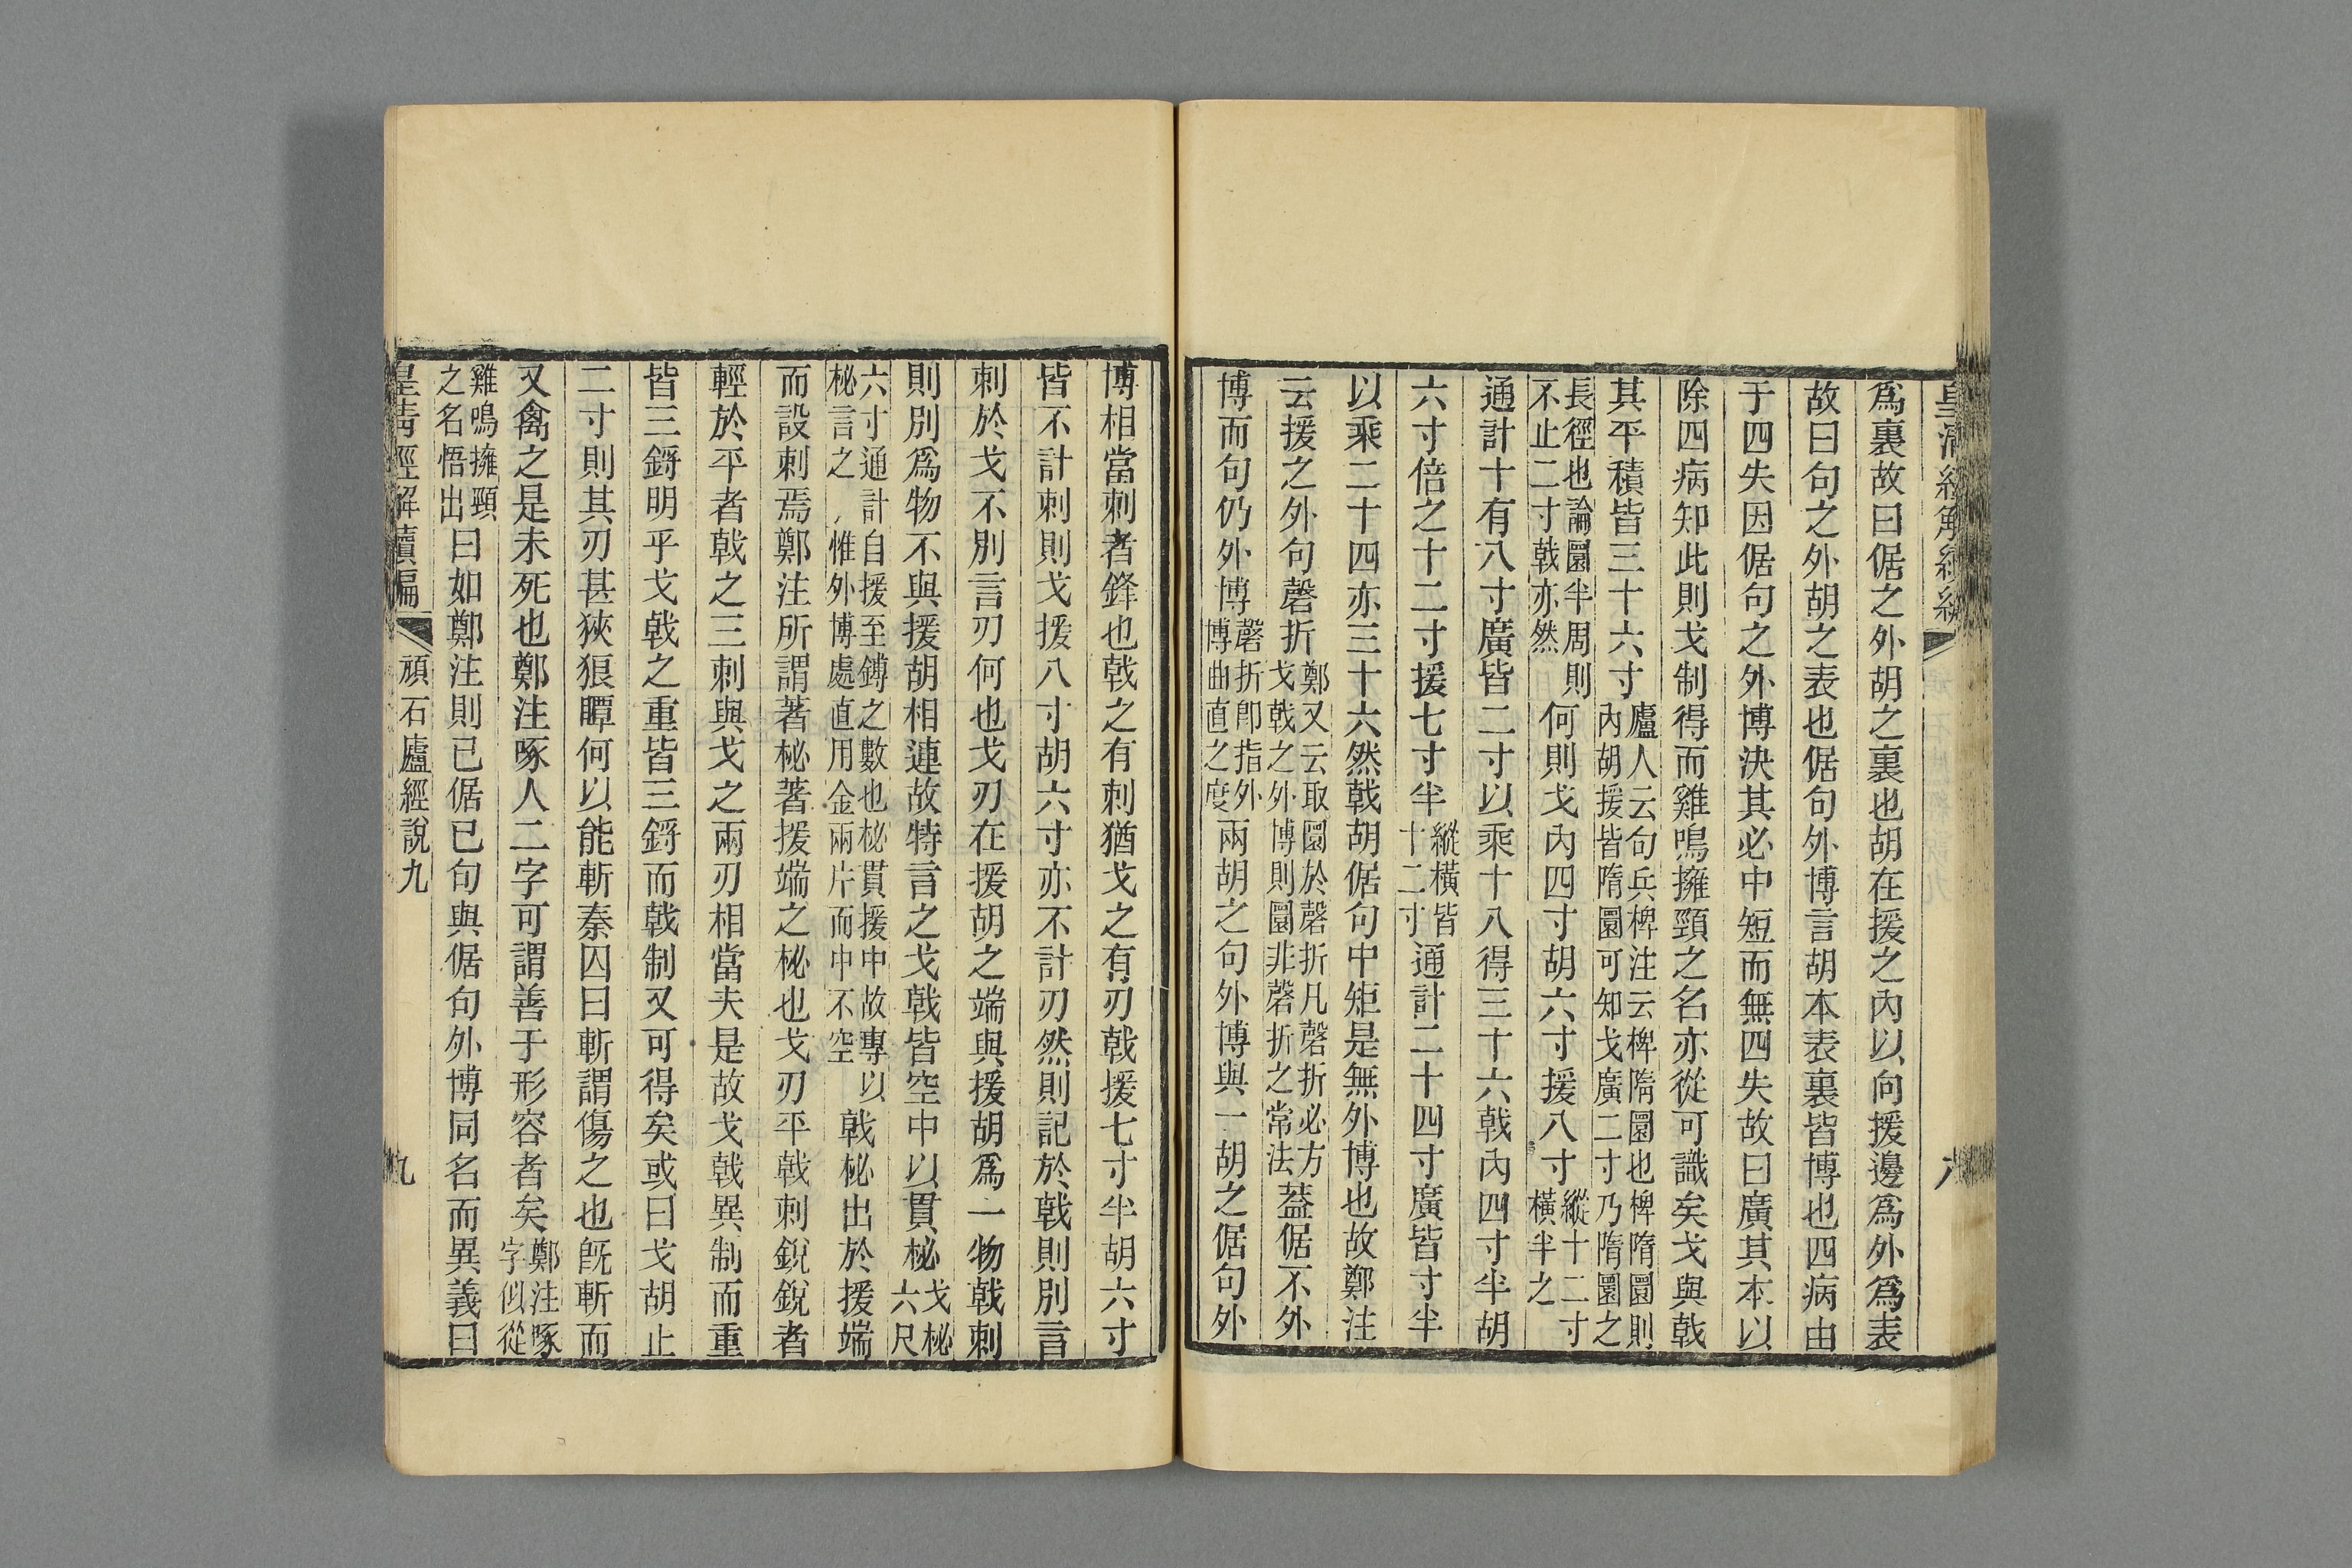 爲裏故曰倨之外胡之裏也胡在援之內以向援邊爲外爲表
故曰句之外胡之表也倨句外博言胡本表裏皆博也四病由
于四失因倨句之外博決其必中短而無四失故曰廣其本以
除四病知此則戈制得而雞鳴擁頸之名亦從可識矣戈與戟
其平積皆三十六寸廬人云句兵椑注云椑隋圜也椑隋圜則
內胡援皆隋圜可知戈廣二寸乃隋圜之
長徑也論圜半周則
不止二寸戟亦然何則戈內四寸胡六寸援八寸縱十二寸
橫半之
通計十有八寸廣皆二寸以乘十八得三十六戟內四寸半胡
六寸倍之十二寸援七寸半縱橫皆
十二寸通計二十四寸廣皆寸半
以乘二十四亦三十六然戟胡倨句中矩是無外博也故鄭注
云援之外句磬折鄭又云取圜於磬折凡磬折必方
戈戟之外博則圜非磬折之常法蓋倨不外
博而句仍外博磬折卽指外
博曲直之度兩胡之句外博與一胡之倨句外
博相當刺者鋒也戟之有刺猶戈之有刃戟援七寸半胡六寸
皆不計刺則戈援八寸胡六寸亦不計刃然則記於戟則別言
刺於戈不別言刃何也戈刃在援胡之端與援胡爲一物戟刺
則別爲物不與援胡相連故特言之戈戟皆空中以貫柲戈柲
六尺
六寸通計自援至鐏之數也柲貫援中故專以
柲言之惟外博處直用金兩片而中不空戟柲出於援端
而設刺焉鄭注所謂著柲著援端之柲也戈刃平戟刺銳銳者
輕於平者戟之三刺與戈之兩刃相當夫是故戈戟異制而重
皆三鋝明乎戈戟之重皆三鋝而戟制又可得矣或曰戈胡止
二寸則其刃甚狹狼瞫何以能斬秦囚曰斬謂傷之也旣斬而
又禽之是未死也鄭注啄人二字可謂善于形容者矣鄭注啄
字似從
雞鳴擁頸
之名悟出曰如鄭注則已倨已句與倨句外博同名而異義曰
皇清經解續編 頑石廬經說九 九